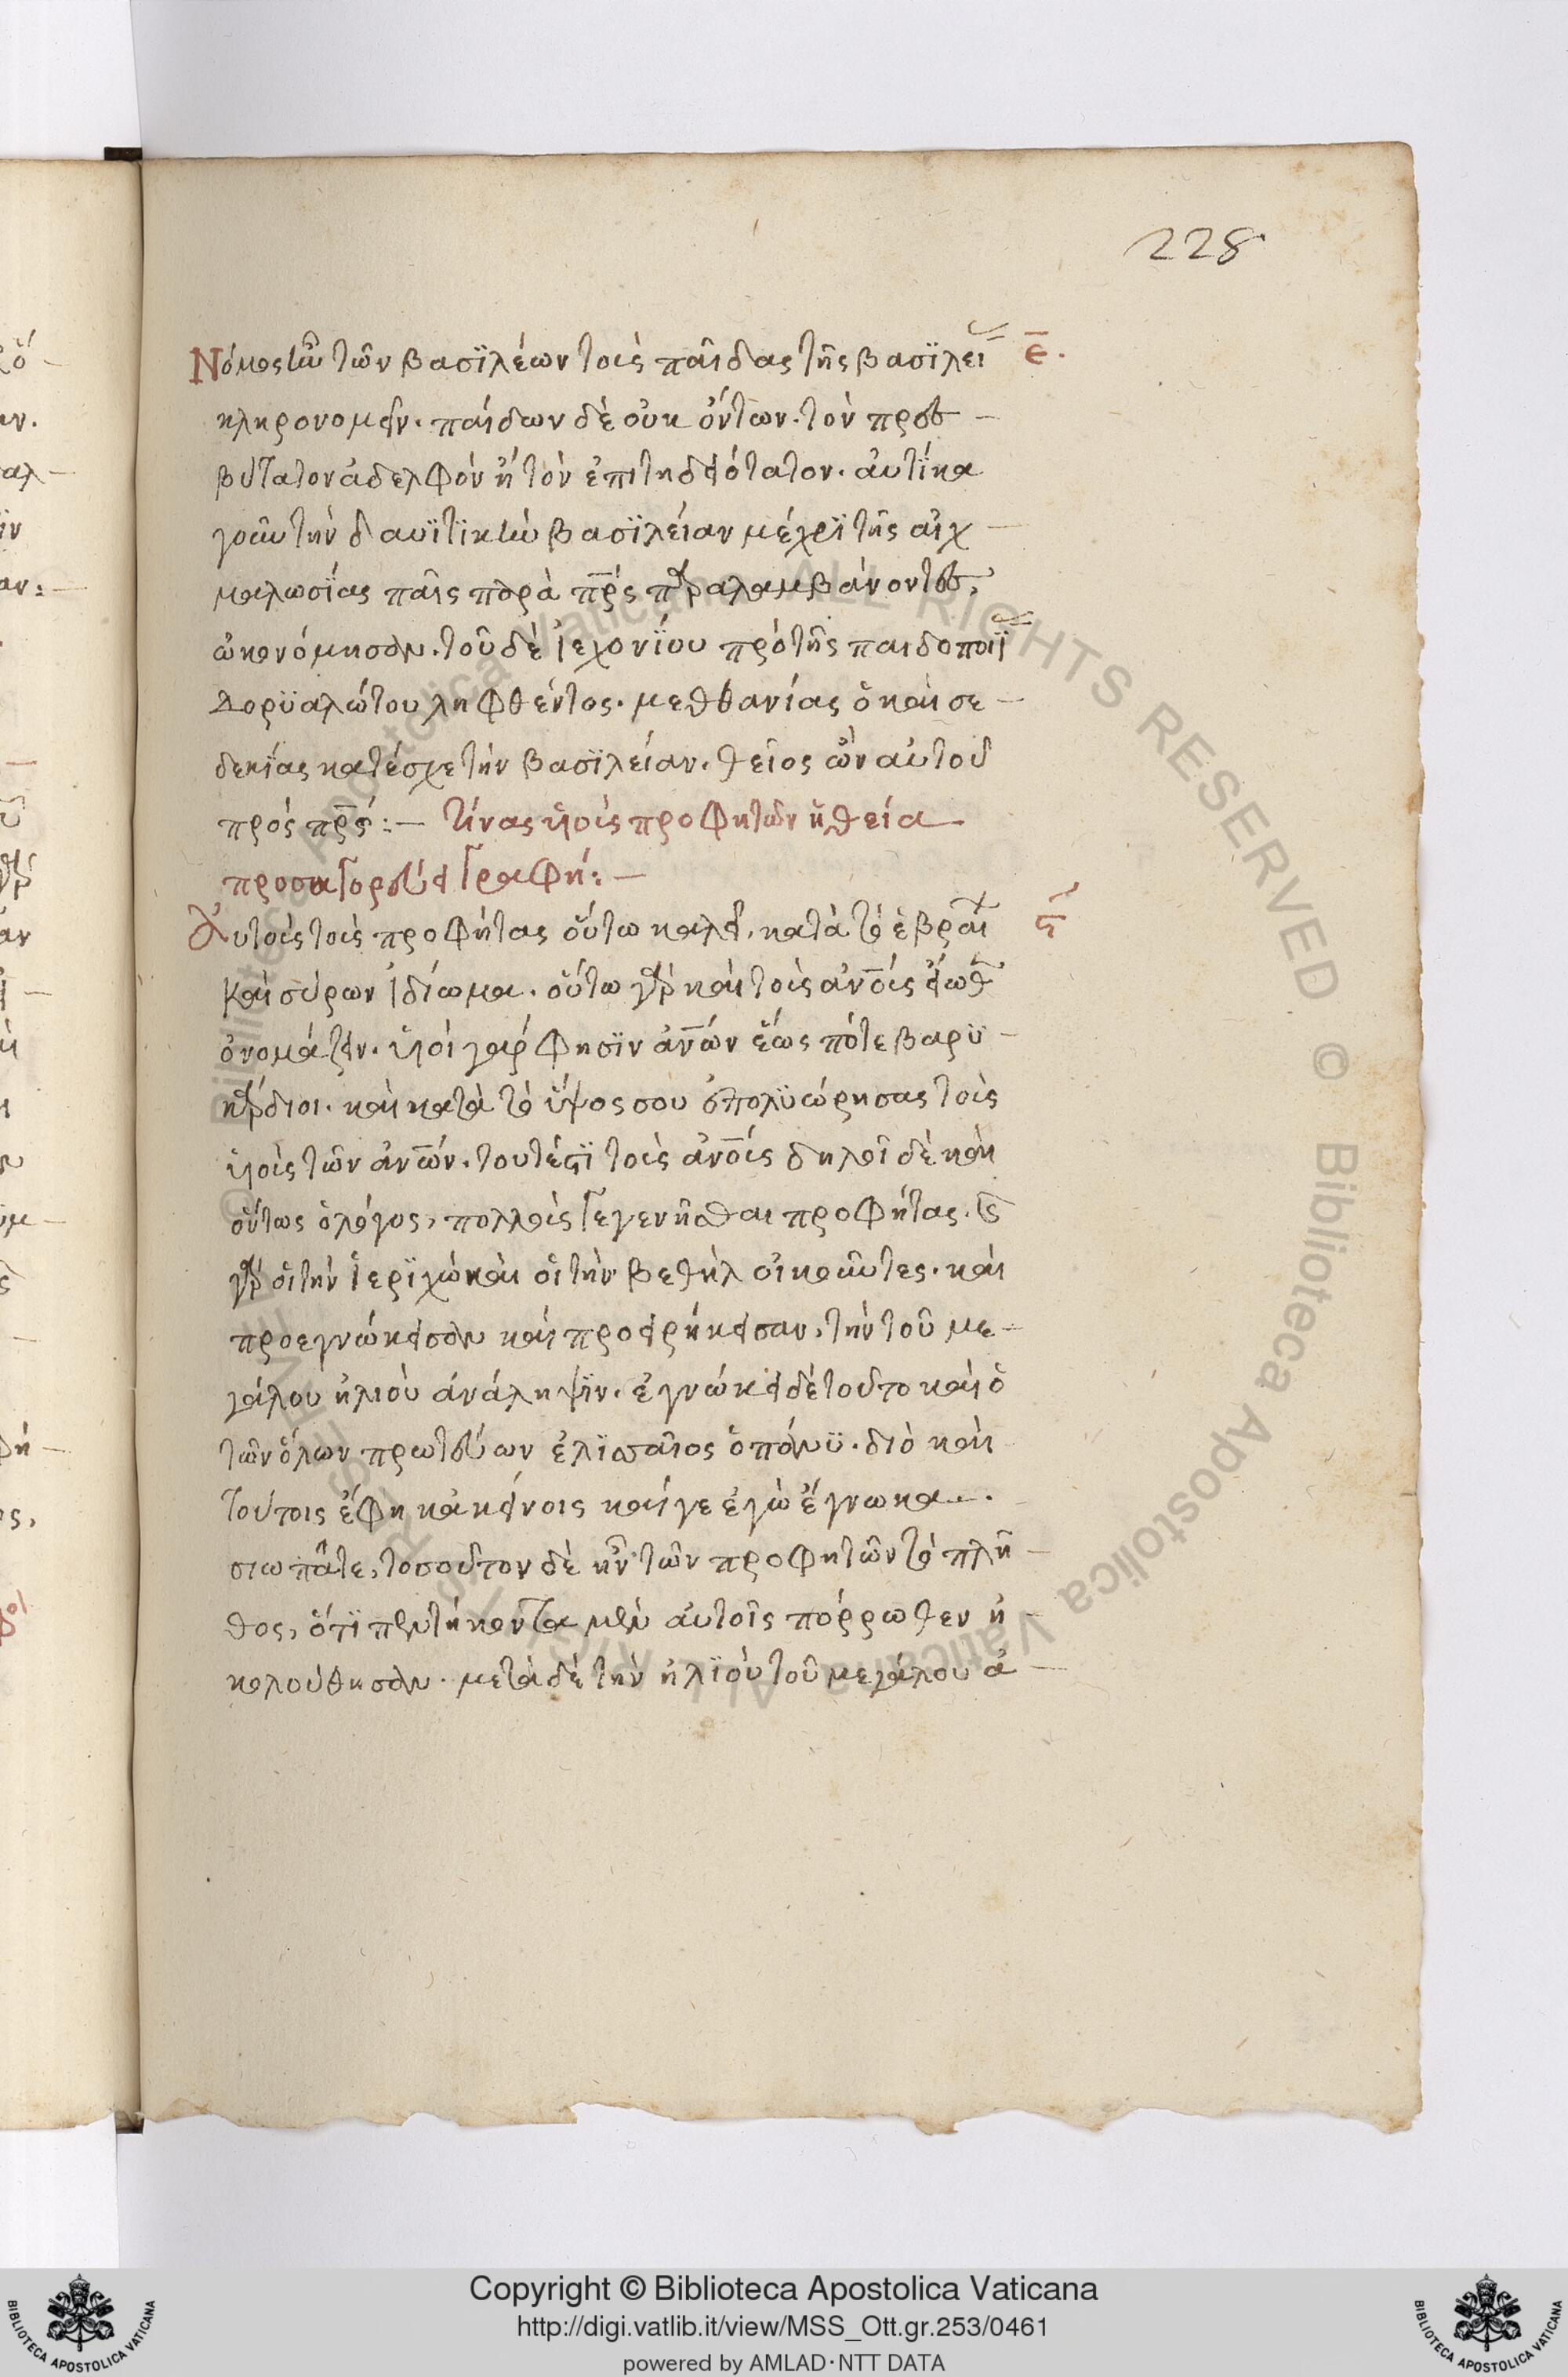 228
Νόμος ἦν τῶν βασϊλέων τοὺς παῖδας τῆς βασϊλεί ε̄.
κληρονομεῖν. παίδων δὲ οὐκ ὄντων. τὸν πρεσ-
βύτατον ἀδελφὸν ἢ τὸν ἐπιτηδειότατον. αὐτίκα
γοῦν τὴν δαυϊτικὴν βασϊλείαν μέχρϊ τῆς αἰχ-
μαλωσίας παῖς παρὰ πρ̅ς παραλαμβάνοντες,
ὠκονόμησαν. τοῦ δὲ ἰεχονίου πρὸ τῆς παιδοποιΐ
δορϋαλώτου ληφθέντος. μεθθανίας ὁ καὶ σε-
δεκίας κατέσχε τὴν βασϊλείαν. θεῖος ὢν αὐτοῦ
πρὸς πρ̅ς:— Τίνας υἱοὺς προφητῶν ἡ θεία
προσαγορεύει γραφή:—
Αὐτοὺς τοὺς προφήτας οὕτω καλεῖ. κατὰ τὸ ἑβραί ϛ
καὶ σύρων ἰδίωμα. οὕτω γὰρ καὶ τοὺς ἀν̅ους εἴωθ
ὀνομάζειν. υἱοί γάρ φησϊν ἀν̅ων ἕως πότε βαρϋ-
κάρδιοι. καὶ κατὰ τὸ ὕψος σου ἐπολϋώρησας τοὺς
υἱοὺς τῶν ἀν̅ων. τουτέστϊ τοὺς ἀν̅ους δηλοῖ δὲ καὶ
οὕτως ὁ λόγος, πολλοὺς γεγενῆσθαι προφήτας.
γὰρ οἱ τὴν ἱερϊχὼ καὶ οἱ τὴν βεθὴλ οἰκοῦντες. καὶ
προεγνώκεισαν καὶ προειρήκεισαν, τὴν τοῦ με-
γάλου ἠλιοὺ ἀνάληψϊν. ἐγνώκει δὲ τοῦτο καὶ ὁ
τῶν ὅλων πρωτεύων ἐλϊσσαῖος ὁ πάνυ. διὸ καὶ
τούτοις ἔφη κἀκείνοις καί γε ἐγὼ ἔγνωκα.
σιωπᾶτε, τοσοῦτον δὲ ἦν τῶν προφητῶν τὸ πλῆ-
θος, ὅτϊ πεντήκοντα μὲν αὐτοῖς πόρρωθεν ἠ-
κολούθησαν. μετὰ δὲ τὴν ἠλϊοὺ τοῦ μεγάλου ἀ-
Copyright © Biblioteca Apostolica Vaticana
http://digi.vatlib.it/view/MSS_Ott.gr.253/0461
powered by AMLAD·NTT DATA